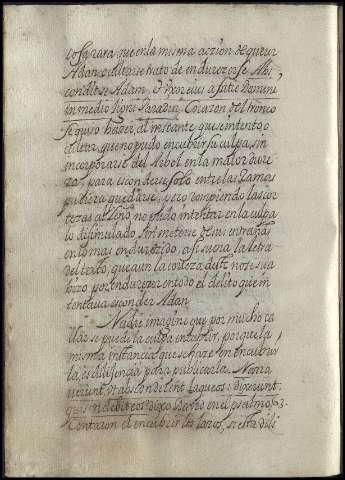 cosa rara que en la misma accion de querer
Adan ocultarse trato de endurezerse Abs
condit se Adam, & Vxor eius a facie Domini
in medio ligni Paradisi, Corazon del tronco
se quiso hazer, al instante que se intentò o
cultar, que no pudo encubrir su culpa, sin
incorporarse del Arbol en la maior dure
za, para esconderse solo entre las Ramas
pudiera quedarse, pero rompiendo las cor
tezas al leño no pudo intentar en la culpa
lo disimulado, sin meterse de sus entrañas
en lo mas endurezido, asi suena la letra
del texto, que aun la corteza
hizo por endurezer en todo el delito que in
tentava esconder Adan
Nadie imagine que por mucho ca
llar se puede la culpa encubrir, porque la
misma instancia que se haze con encubrir
la, es diligencia para publicarla. Narra
verunt, vt absconderent laqueos: dixerunt
quis videbit eos? dixo David en el psalmo 63.
Contaron el encubrir los lazos, si esta dili